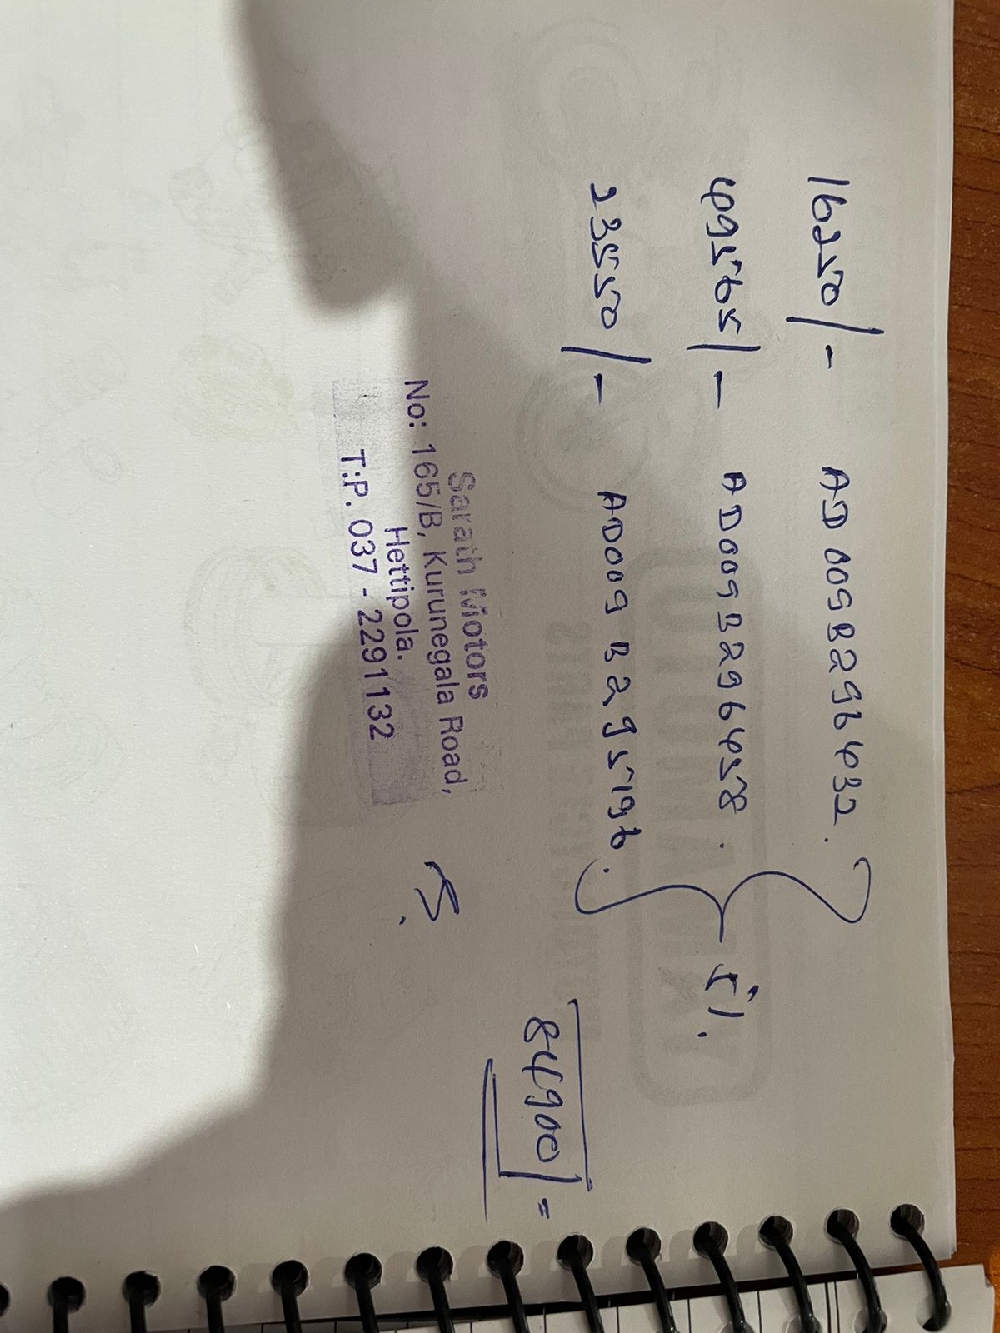 16250/- AD 009B296432.
49565/- AD009B296458.
23550/- AD009B295196.
5%.
84900/=
Sarath Motors
No: 165/B, Kurunegala Road,
Hettipola.
T.P. 037 - 2291132